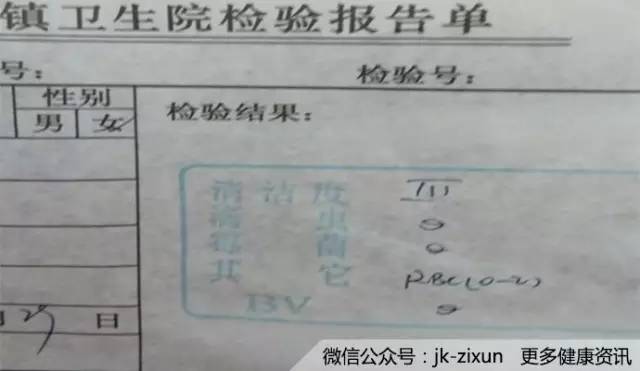 镇卫生院检验报告单
号: 检验号:
性别 检验结果:
男 女
清洁度 III
滴虫 0
霉菌 0
其它 RBC(0-2)
BV 0
月29日
微信公众号：jk-zixun 更多健康资讯